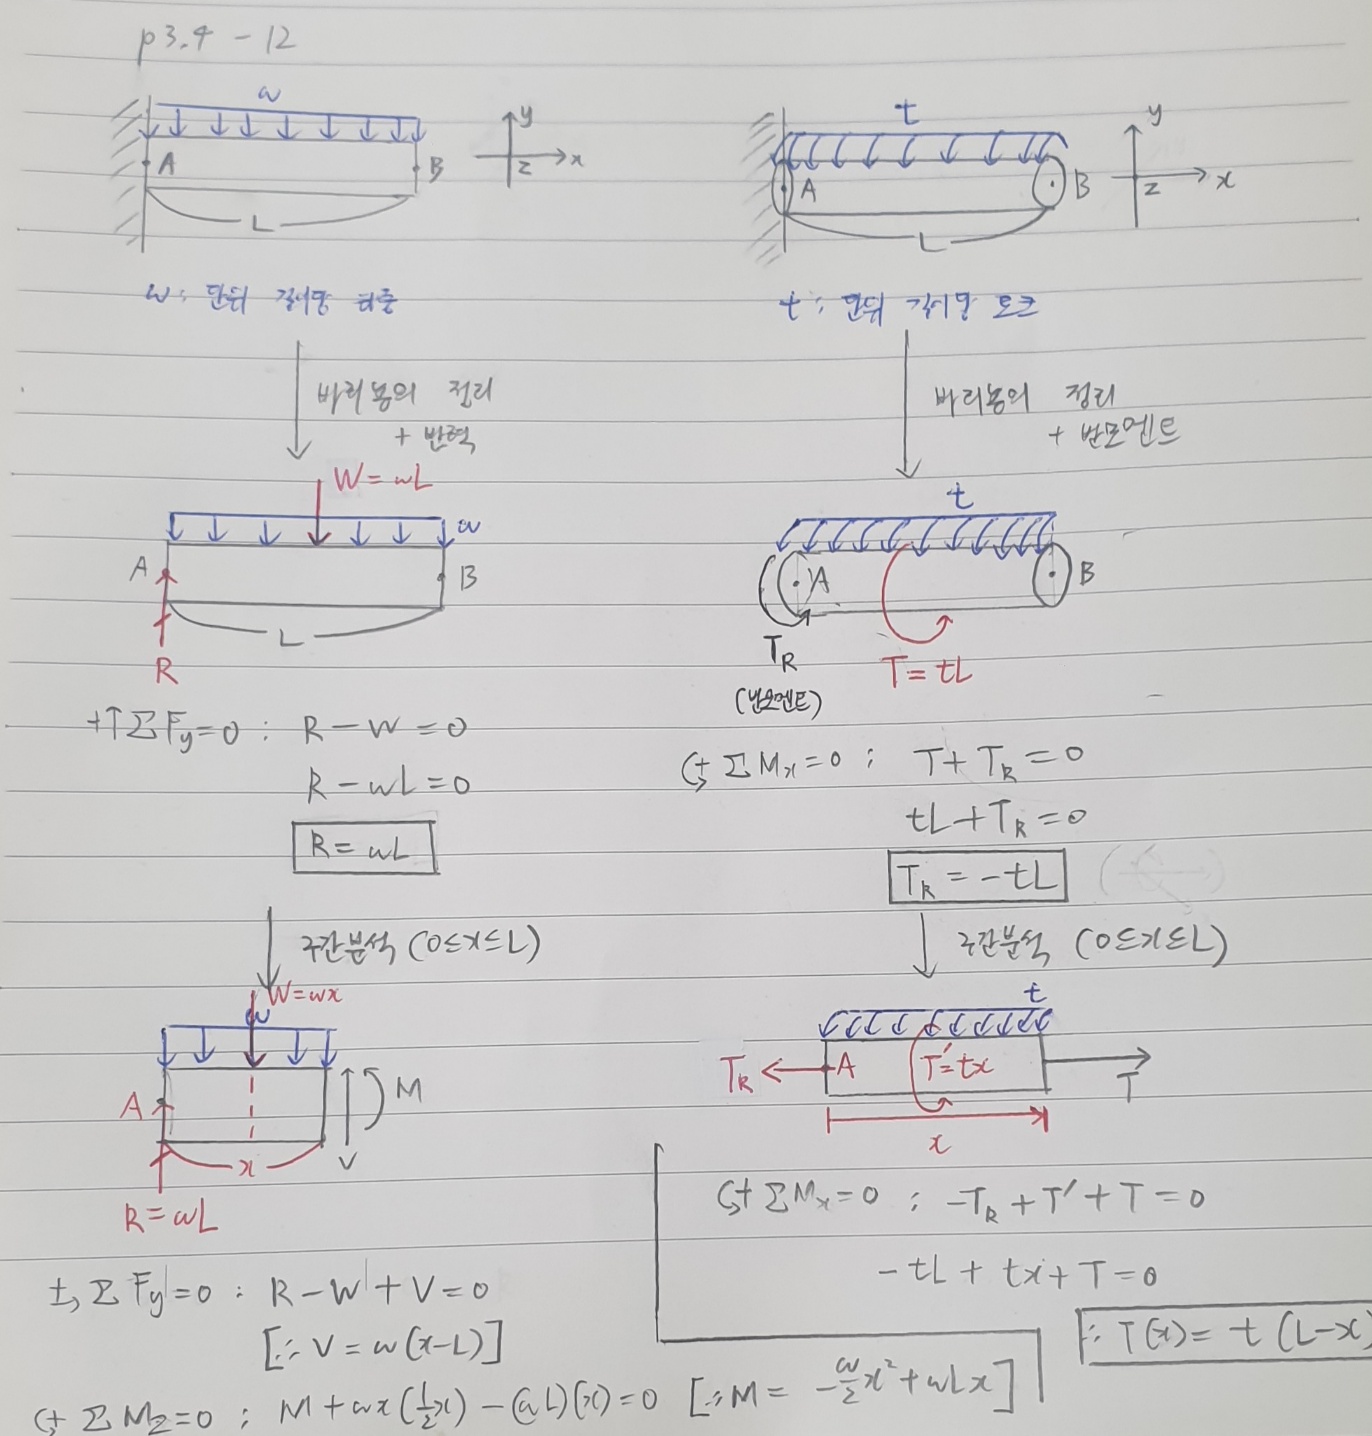 p3.4 - 12
w
A
B
y
x
z
L
w : 단위 길이당 하중
바리뇽의 정리
+ 반력
W = wL
w
A
B
L
R
+↑ΣFy=0 : R - W = 0
R - wL = 0
R = wL
구간분석 (0≤x≤L)
W=wx
w
A
M
V
x
R = wL
+↓ΣFy=0 : R - W + V = 0
[∴ V = w(x-L)]
ΣMz=0 ; M + wx(½x) - (wL)(x) = 0 [∴ M = -w/2 x² + wLx]
t
A
B
y
x
z
L
t : 단위 길이당 토크
바리뇽의 정리
+ 반모멘트
t
A
B
TR
(반모멘트)
T = tL
+ΣMx=0 ; T + TR = 0
tL + TR = 0
TR = -tL
구간분석 (0≤x≤L)
t
TR
A
T'=tx
T
x
+ΣMx=0 ; -TR + T' + T = 0
-tL + tx + T = 0
∴ T(x) = t (L-x)